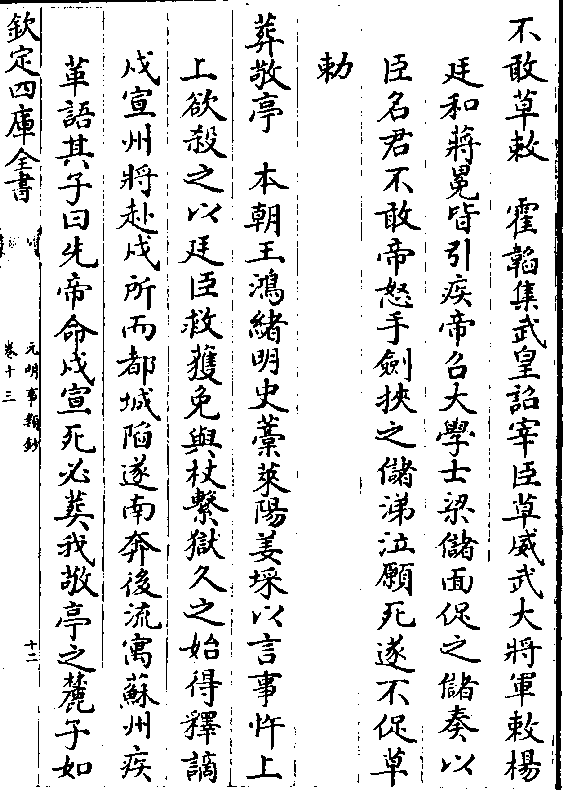 不敢草敕　霍韜集武皇詔宰臣草威武大將軍敕楊
廷和蔣冕皆引疾帝召大學士梁儲面促之儲奏以
臣名君不敢帝怒手劍挾之儲涕泣願死遂不促草
勅
葬敬亭　本朝王鴻緒明史藁萊陽姜埰以言事忤上
上欲殺之以廷臣救獲免與杖繫獄久之始得釋謫
戍宣州將赴戍所而都城陷遂南奔後流寓蘇州疾
革語其子曰先帝命戍宣死必葬我敬亭之麓子如
欽定四庫全書
元明事類鈔
卷十三
十二